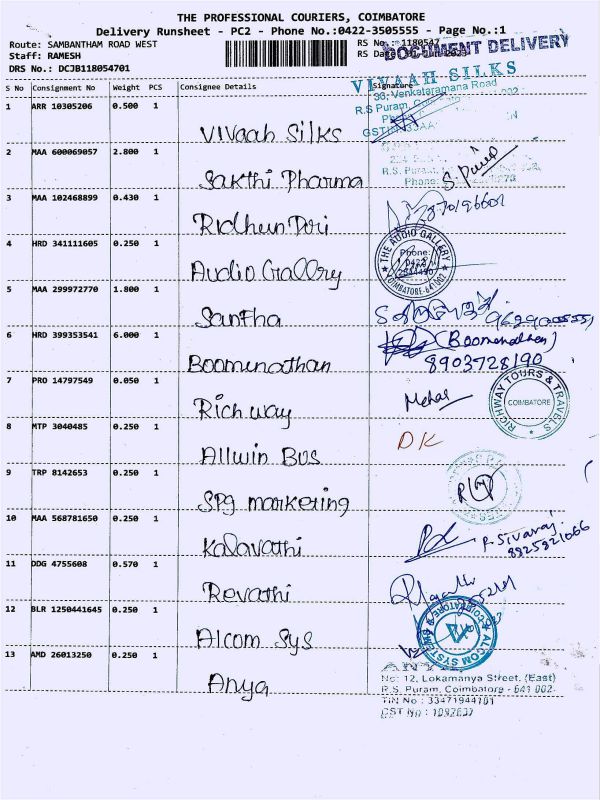 THE PROFESSIONAL COURIERS, COIMBATORE
Delivery Runsheet - PC2 - Phone No.:0422-3505555 - Page No.:1
Route: SAMBANTHAM ROAD WEST RS No : 1180547
Staff: RAMESH RS Date
DRS No.: DCJB118054701
DOCUMENT DELIVERY
S No Consignment No Weight PCS Consignee Details Signature
VIVAAH SILKS
Venkataramana Road
R.S Puram,
1 ARR 10305206 0.500 1
Vivaah Silks
2 MAA 600069057 2.800 1
Sakthi Pharma
R.S. Puram,
Phone:
3 MAA 102468899 0.430 1
Ridhun Dori
8870196601
4 HRD 341111605 0.250 1
Audio Grallery
THE AUDIO GALLERY
Phone:
0422
COIMBATORE-641 002
5 MAA 299972770 1.800 1
Santha
6 HRD 399353541 6.000 1
Boomenathan
(Boomenathan)
8903728190
7 PRO 14797549 0.050 1
Rich way
RICHWAY TOURS & TRAVELS
COIMBATORE
8 MTP 3040485 0.250 1
Allwin Bus
DK
9 TRP 8142653 0.250 1
SPg marketing
10 MAA 568781650 0.250 1
Kalavathi
R. Sivaraj
8825821066
11 DDG 4755608 0.570 1
Revathi
12 BLR 1250441645 0.250 1
Alcom Sys
ALCOM SYSTEMS
COIMBATORE
13 AMD 26013250 0.250 1
Anya
No: 12, Lokamanya Street, (East)
R.S. Puram, Coimbatore - 641 002.
TIN No : 33471944101
CST No : 1092637